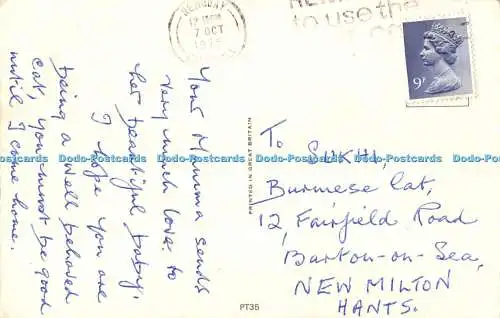 NEWBURY
12 15PM
7 OCT
1979
to use the
9P
Your Mumma sends
very much love to
her beautiful baby.
I hope you are
being a well behaved
cat, you must be good
until I come home.
PRINTED IN GREAT BRITAIN
To
SUKHI,
Burmese Cat,
12, Fairfield Road
Barton-on-Sea,
NEW MILTON
HANTS.
PT35
Dodo-Postcards Dodo-Postcards Dodo-Postcards Dodo-Postcards Dodo-Postcards Dodo-Postcards